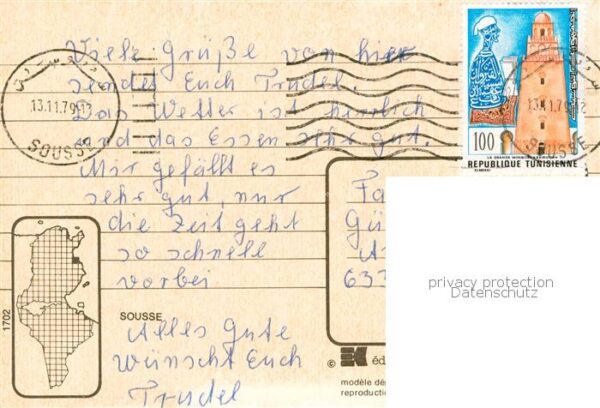 Viele Grüße von hier
sendet Euch Trudel.
Das Wetter ist herrlich
und das Essen sehr gut.
Mir gefällt es
sehr gut, nur
die Zeit geht
so schnell
vorbei
Alles Gute
wünscht Euch
Trudel
13.11.79
SOUSSE
13.11.79
SOUSSE
100
REPUBLIQUE TUNISIENNE
Fa
Gü
A
633
privacy protection
Datenschutz
1702
SOUSSE
© EK éd
modèle dé
reproductio